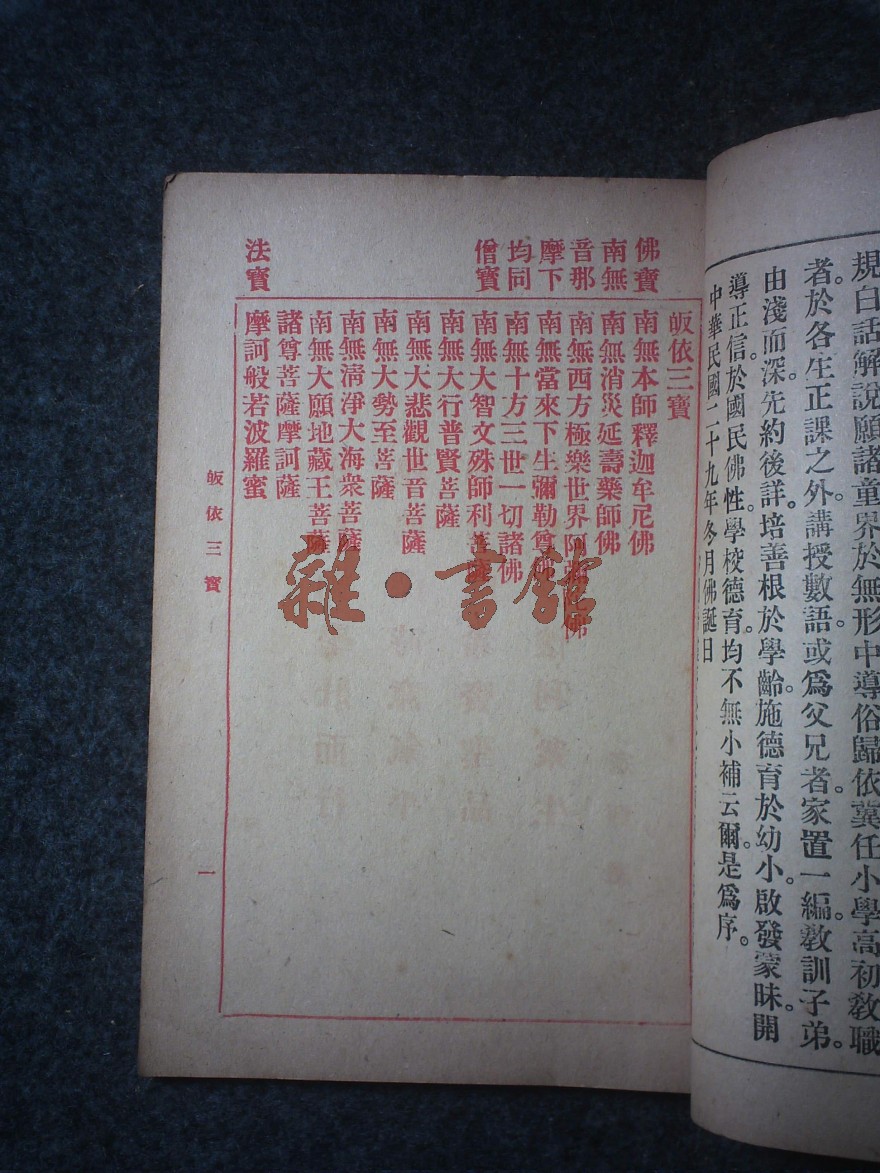 規白話解說願諸童界於無形中導俗歸依冀任小學高初教職
者於各生正課之外講授數語或爲父兄者家置一編教訓子弟。
由淺而深。先約後詳。培善根於學齡。施德育於幼小。啟發蒙昧。開
導正信。於國民佛性。學校德育。均不無小補云爾。是爲序。
中華民國二十九年冬月佛誕日
佛寶
南無
音那
摩下
均同
僧寶
法寶
皈依三寶
南無本師釋迦牟尼佛
南無消災延壽藥師佛
南無西方極樂世界阿彌陀佛
南無當來下生彌勒尊佛
南無十方三世一切諸佛
南無大智文殊師利菩薩
南無大行普賢菩薩
南無大悲觀世音菩薩
南無大勢至菩薩
南無清淨大海衆菩薩
南無大願地藏王菩薩
諸尊菩薩摩訶薩
摩訶般若波羅蜜
皈依三寶
一
雜·書館